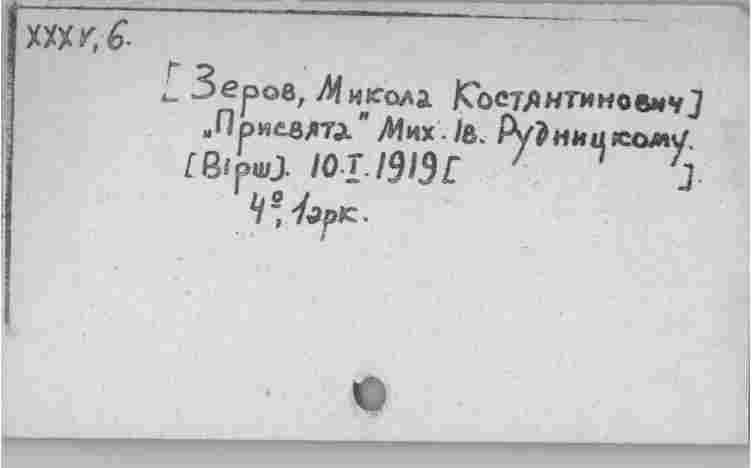 XXXV, 6.
[Зеров, Микола Костянтинович]
„Присвята" Мих. Ів. Рудницкому.
[Вірш]. 10.I.1919 [ ].
4º, 1 арк.